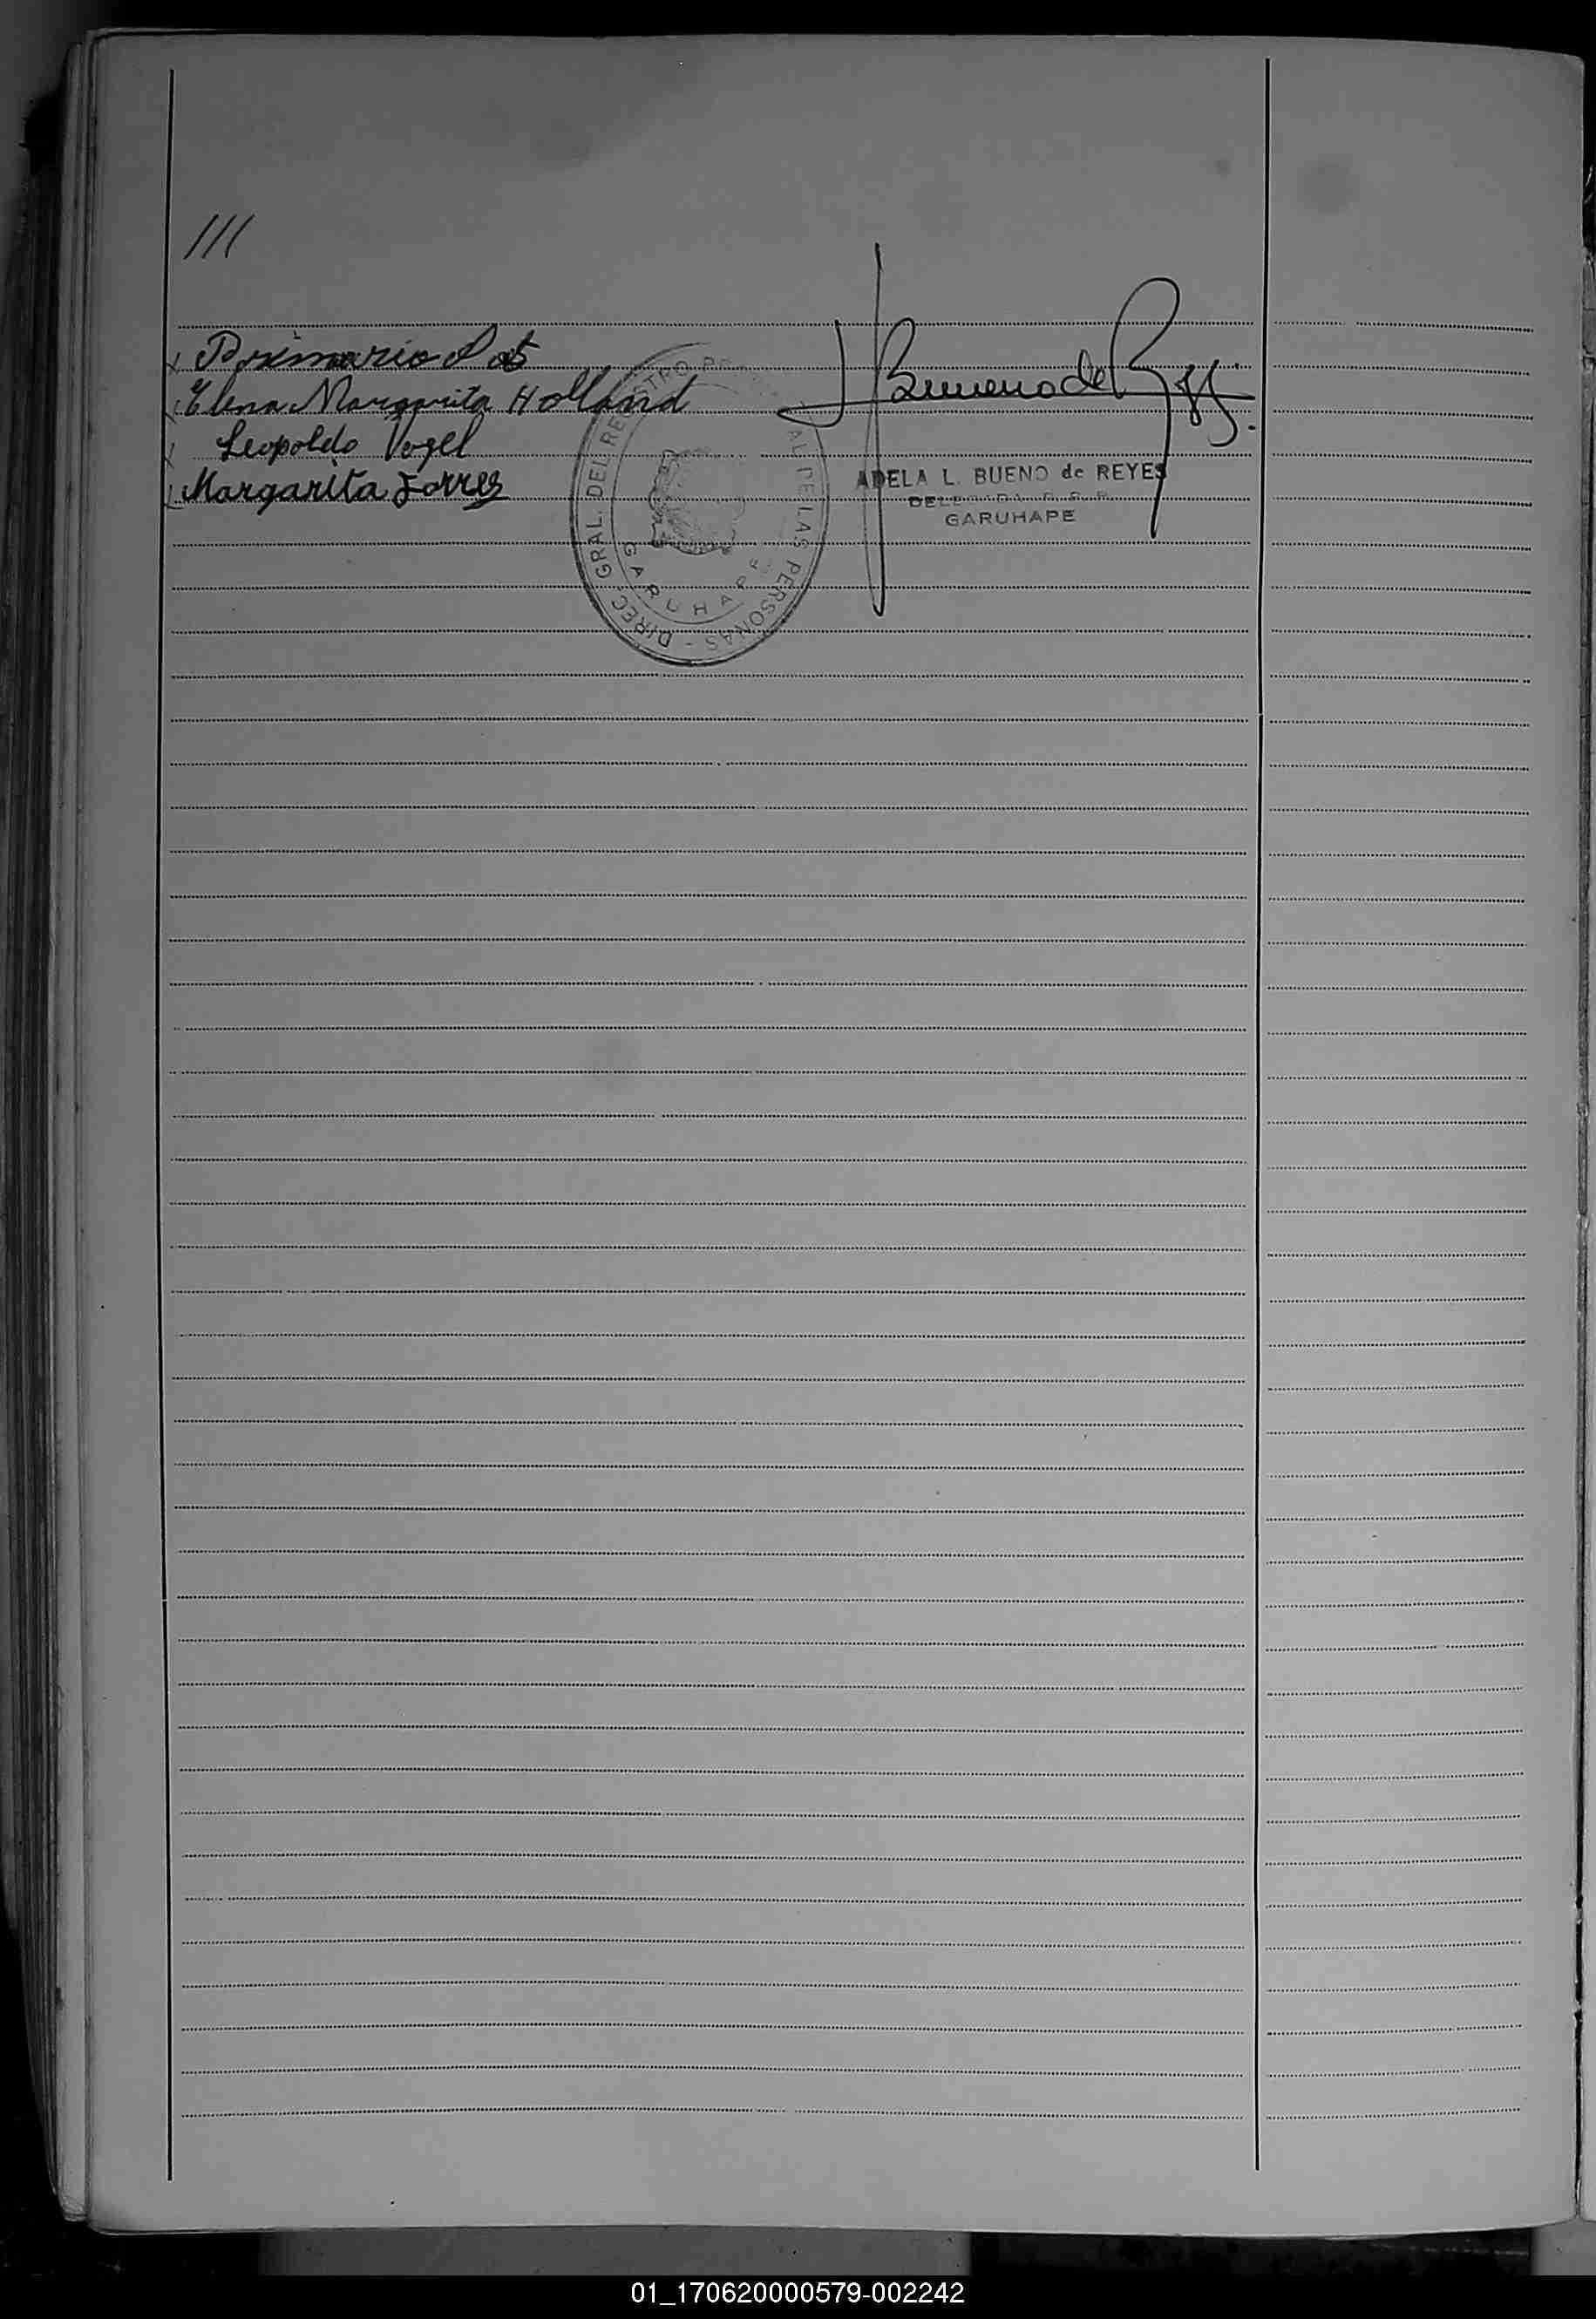 ///
Elena Margarita Holland
Leopoldo Vogel
Margarita Torres
Bueno de
ADELA L. BUENO de REYES
GARUHAPE
DIREC GRAL. DEL REGISTRO AL DE LAS PERSONAS -
GARUHAPE
01_170620000579-002242